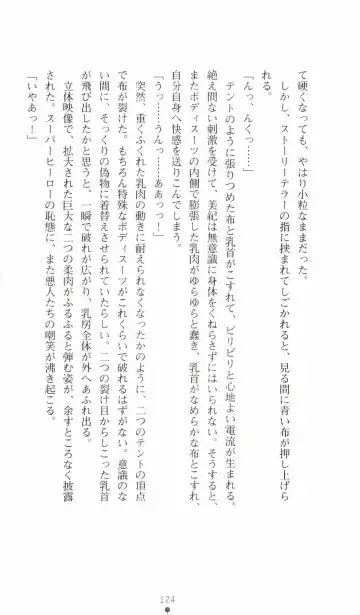 て硬くなっても、やはり小粒なままだった。
　しかし、ストーリーテラーの指に挟まれてしごかれると、見る間に青い布が押し上げら
れる。
「んっ、んくっ……」
　テントのように張りつめた布と乳首がこすれて、ビリビリと心地よい電流が生まれる。
絶え間ない刺激を受けて、美紀は無意識に身体をくねらさずにはいられない。そうすると、
またボディスーツの内側で膨張した乳肉がゆらゆらと蠢き、乳首がなめらかな布とこすれ、
自分自身へ快感を送りこんでしまう。
「うっ……うんっ……ああっ！」
　突然、重くふくれた乳肉の動きに耐えられなくなったかのように、二つのテントの頂点
で布が裂けた。もちろん特殊なボディスーツがこれくらいで破れるはずがない。意識のな
い間に、そっくりの偽物に着替えさせられていたらしい。二つの裂け目からしこった乳首
が飛び出したかと思うと、一瞬で破れが広がり、乳房全体が外へあふれ出る。
　立体映像で、拡大された巨大な二つの柔肉がふるふると弾む姿が、余すところなく披露
された。スーパーヒーローの恥態に、また悪人たちの嘲笑が沸き起こる。
「いやあっ！」
124